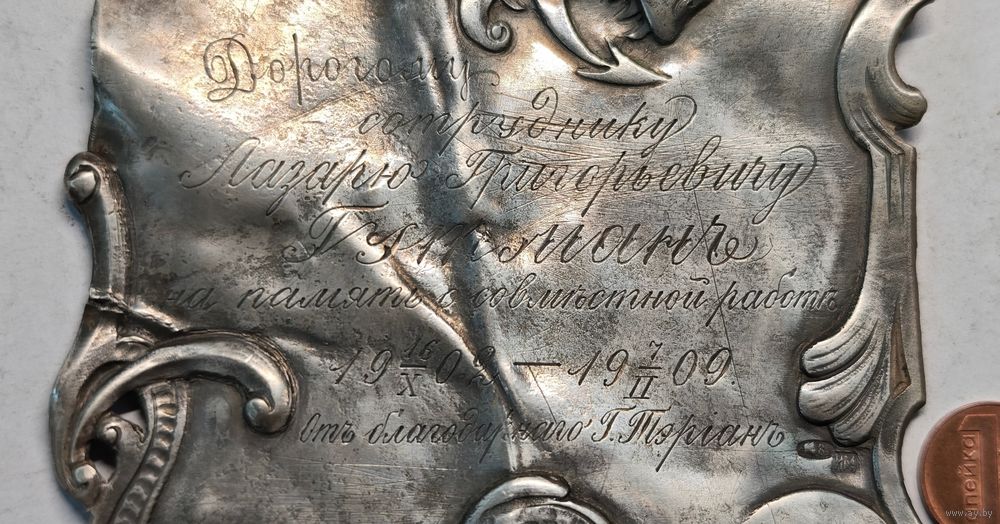 Дорогому
сотруднику
Лазарю Григорьевичу
Гутманъ
на память о совмѣстной работѣ
19 16/X 02 — 19 7/II 09.
Отъ благодарнаго Г. Тэріанъ
копейка
www.ay.by